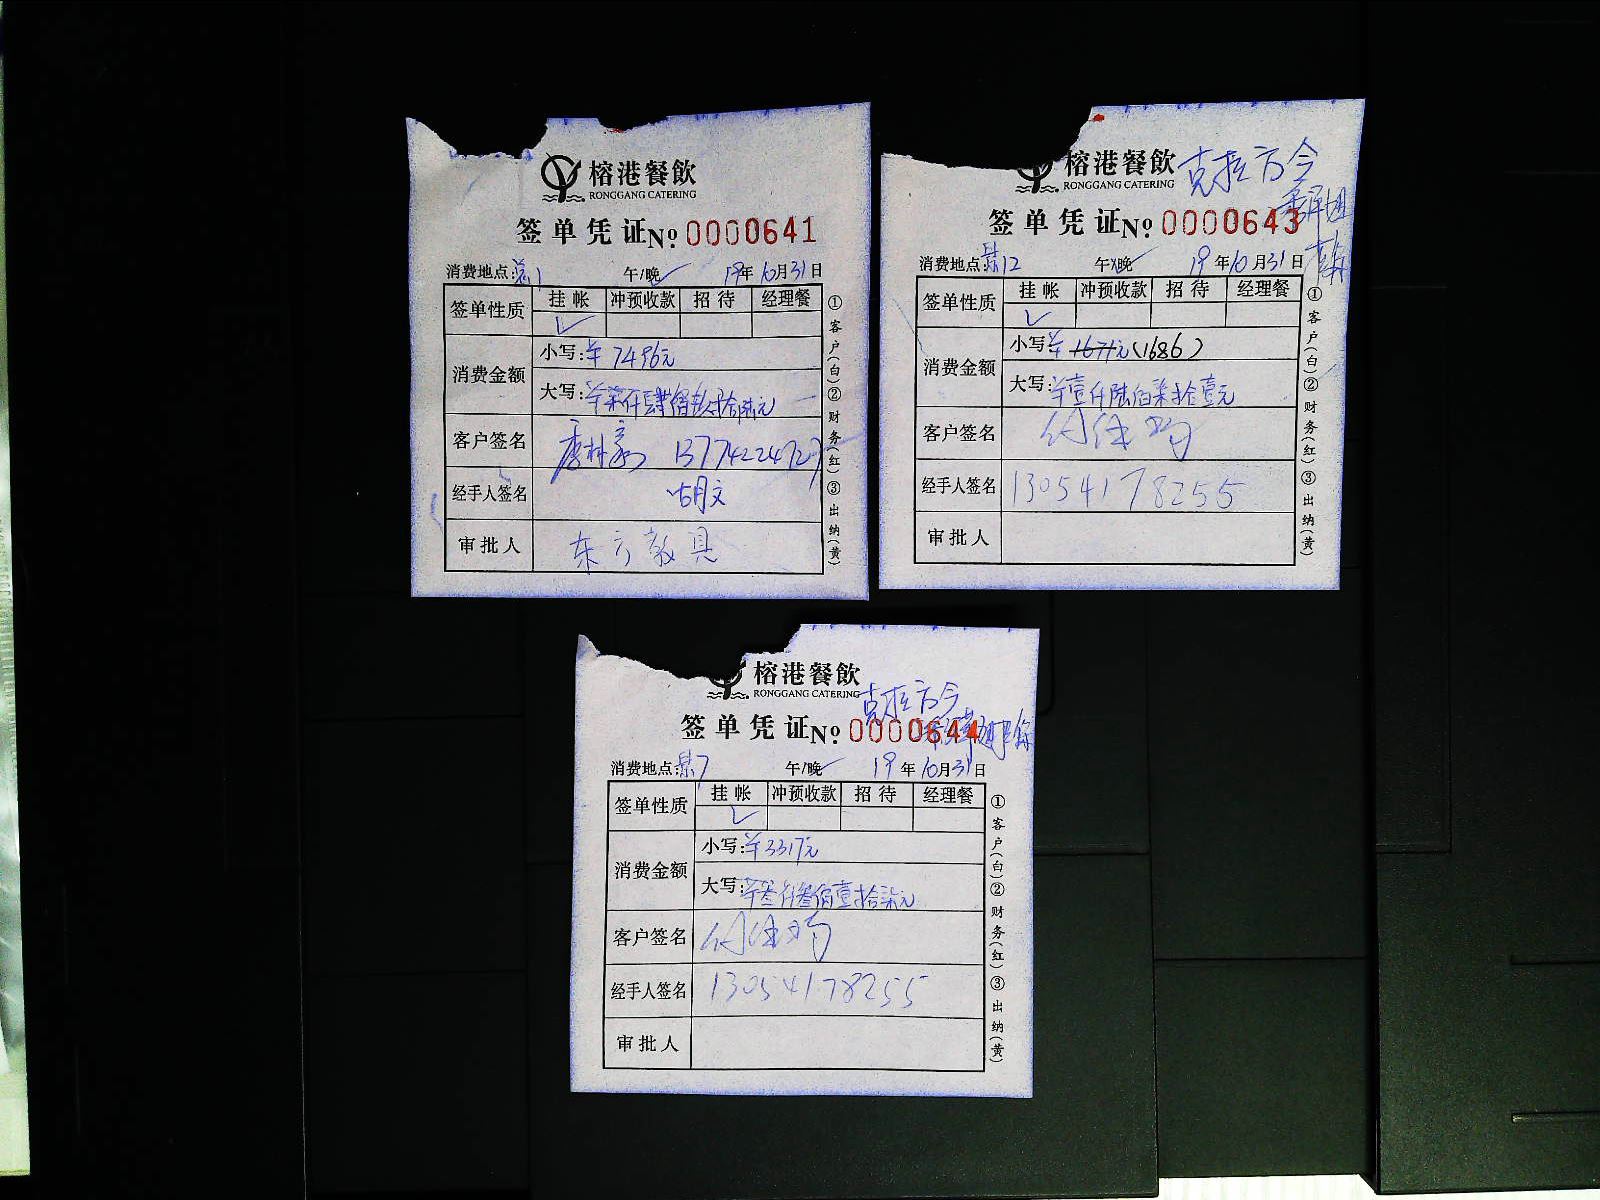 榕港餐飲
RONGGANG CATERING
签单凭证№ 0000641
消费地点: 1 午/晚✓ 19年10月31日
签单性质 挂帐 冲预收款 招待 经理餐
✓
消费金额 小写:羊 7496元
大写:羊柒仟肆佰玖拾陆元
客户签名 13774224727
经手人签名 胡文
审批人 东方教具
①客户(白)②财务(红)③出纳(黄)
榕港餐飲 克拉方今
RONGGANG CATERING
签单凭证№ 0000643
消费地点: 12 午/晚 19年10月31日
签单性质 挂帐 冲预收款 招待 经理餐
✓
消费金额 小写:羊 1671元(1686)
大写:羊壹仟陆佰柒拾壹元
客户签名 付佳鸿
经手人签名 13054178255
审批人
①客户(白)②财务(红)③出纳(黄)
榕港餐飲
RONGGANG CATERING 克拉方今
签单凭证№ 0000644
消费地点: 7 午/晚✓ 19年10月31日
签单性质 挂帐 冲预收款 招待 经理餐
✓
消费金额 小写:羊3317元
大写:羊叁仟叁佰壹拾柒元
客户签名 付佳鸿
经手人签名 13054178255
审批人
①客户(白)②财务(红)③出纳(黄)